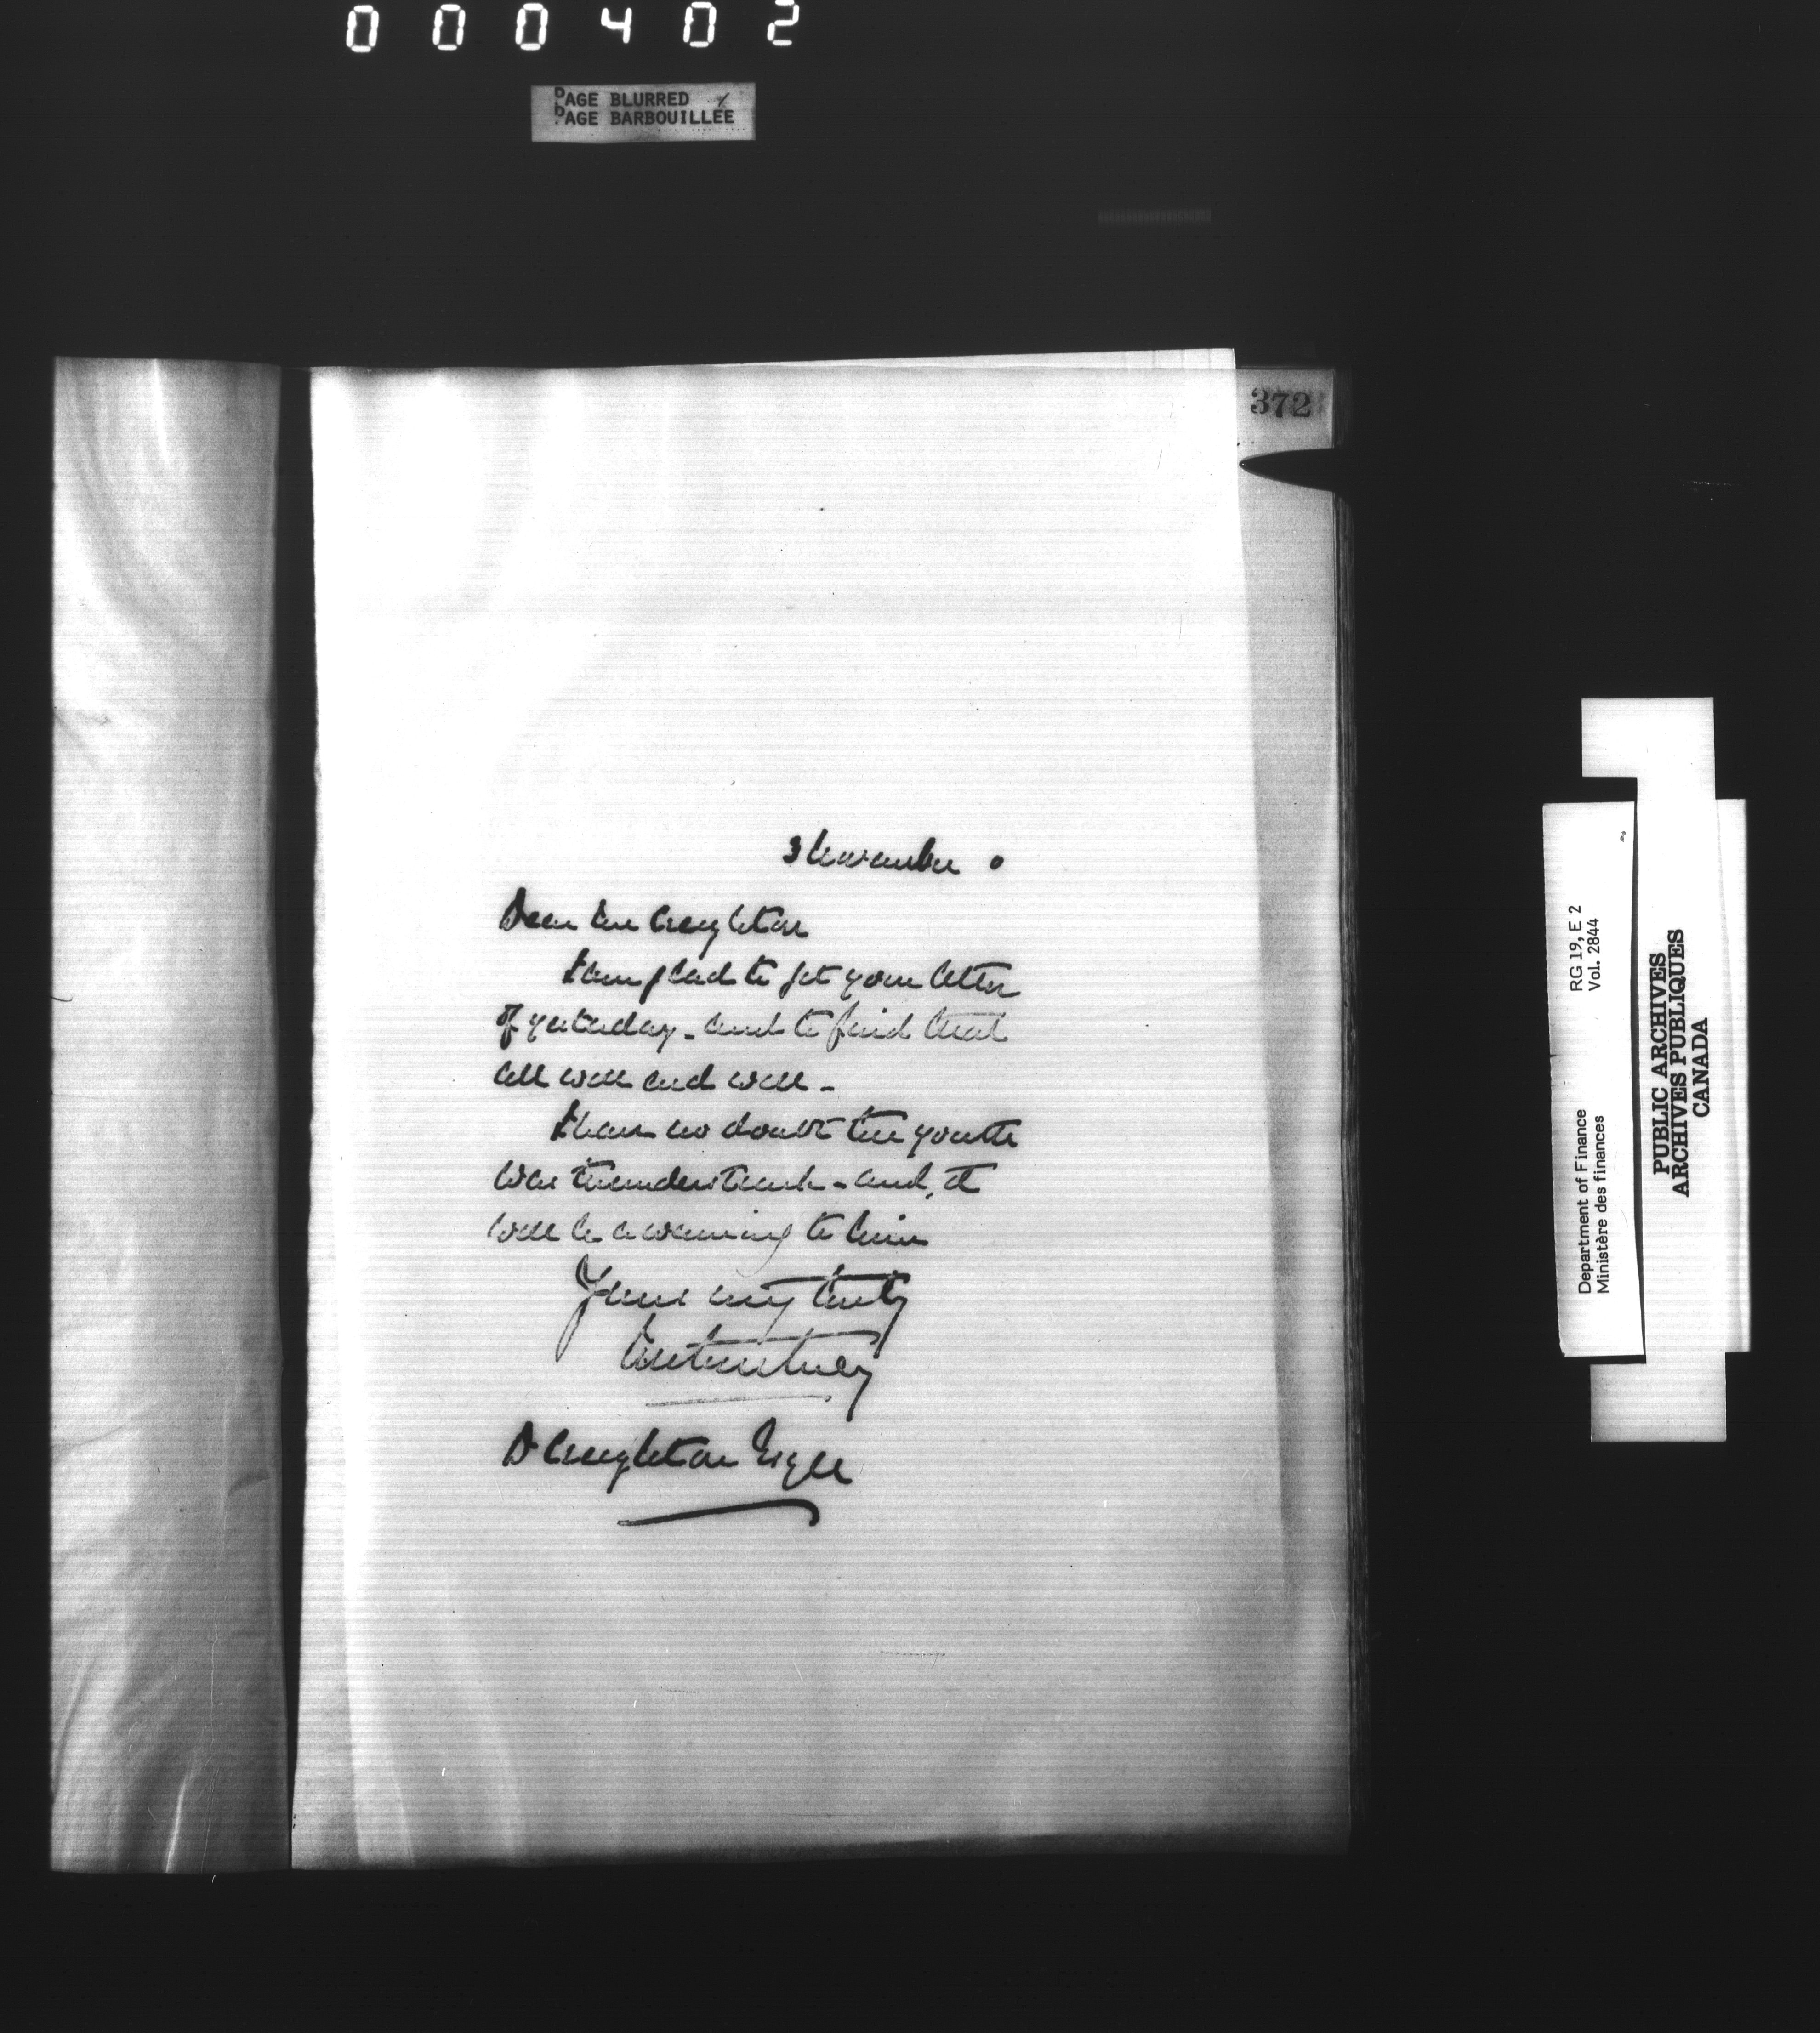 000402
PAGE BLURRED
PAGE BARBOUILLÉE
372
3 November 0
Dear Mr Creighton
I am glad to get your letter
of yesterday - and to find that
all will end well -
I have no doubt the youth
was thunderstruck - and it
will be a warning to him
Yours very truly
D Creighton Esqre
Department of Finance
Ministère des finances
RG 19, E 2
Vol. 2844
PUBLIC ARCHIVES
ARCHIVES PUBLIQUES
CANADA